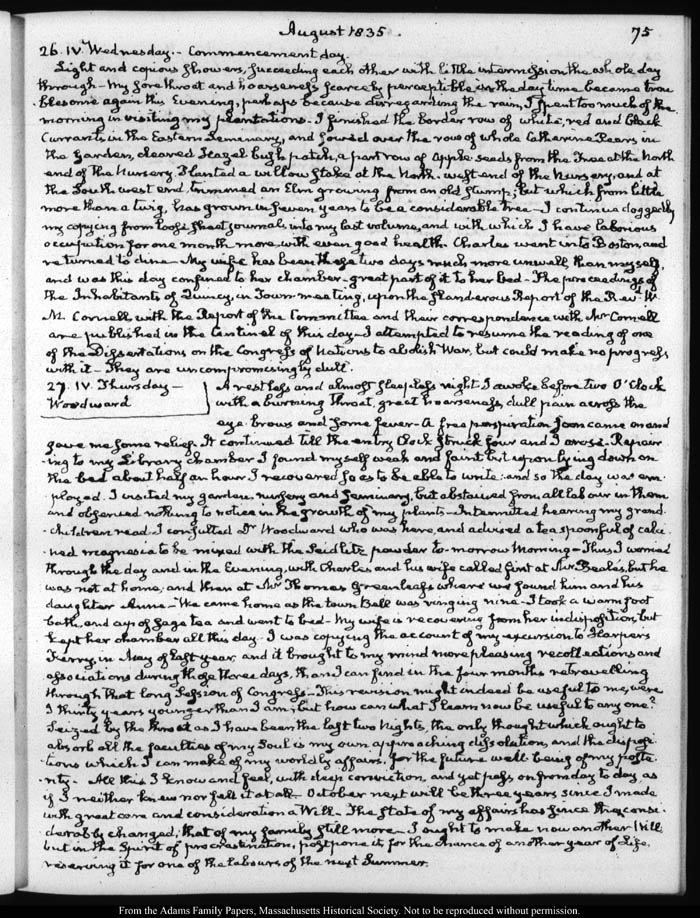 August 1835.
75
26. IV. Wednesday. - Commencement day.
Light and copious showers, succeeding each other with little intermission the whole day
through - My sore throat and hoarseness scarcely perceptible in the day time became trou
blesome again this Evening, perhaps because disregarding the rain, I spent too much of the
morning in visiting my plantations - I finished the border row of white, red and black
Currants in the Eastern Seminary, and sowed over the row of whole Catherine Pears in
the Garden, cleared Hazel bush patch, a part row of Apple seeds from the Tree at the North
end of the Nursery. Planted a willow stake at the North-west end of the Nursery, and at
the South west end, trimmed an Elm growing from an old stump; but which from little
more than a twig, has grown in seven years to be a considerable tree - I continue doggedly
my copying from loose sheet journals into my last volume, and with which I have laborious
occupation for one month more with even good health. Charles went into Boston, and
returned to dine - My wife has been these two days much more unwell than myself,
and was this day confined to her chamber - great part of it to her bed - The proceedings of
the Inhabitants of Quincy, in Town-meeting, upon the slanderous Report of the Revd. W.
M. Cornell, with the Report of the Committee and their correspondence with Mr Cornell
are published in the Centinel of this day - I attempted to resume the reading of one
of the Dissertations on the Congress of Nations to abolish War, but could make no progress
with it - They are uncompromisingly dull.
27. IV. Thursday -
Woodward
A restless and almost sleepless night. I awoke before two O'Clock
with a burning throat, great hoarseness, dull pain across the
eye-brows and some fever - A free perspiration soon came on and
gave me some relief. It continued till the entry Clock struck four and I arose. Repair
ing to my Library chamber I found myself weak and faint but upon lying down on
the bed about half an hour I recovered so as to be able to write: and so the day was em
ployed. I visited my garden, nursery and Seminary, but abstained from all labour in them
and observed nothing to notice in the growth of my plants - Intermitted hearing my grand-
children read. I consulted Dr Woodward who was here, and advised a teaspoonful of calci
ned magnesia to be mixed with the Seidlitz powder to-morrow Morning - Thus I worried
through the day and in the Evening, with Charles and his wife called first at Mr Beale's, but he
was not at home, and then at Mr Thomas Greenleaf's where we found him and his
daughter Anne - We came home as the town Bell was ringing nine - I took a warm foot
bath, and cup of sage tea and went to bed - My wife is recovering from her indisposition, but
kept her chamber all this day. I was copying the account of my excursion to Harpers
Ferry, in May of last year, and it brought to my mind more pleasing recollections and
associations during those three days, than I can find in the four months retravelling
through that long Session of Congress - This revision might indeed be useful to me, were
I thirty years younger than I am, but how can what I learn now be useful to any one?
Seized by the throat as I have been the last two Nights, the only thought which ought to
absorb all the faculties of my Soul is my own approaching dissolution, and the disposi-
tions which I can make of my worldly affairs, for the future well-being of my poste
rity - All this I know and feel, with deep conviction, and yet pass on from day to day, as
if I neither knew nor felt it at all. October next will be three years since I made
with great care and consideration a Will - The state of my affairs has since then consi-
derably changed; that of my family still more - I ought to make now another Will
but in the Spirit of procrastination, postpone it for the chance of another year of Life,
reserving it for one of the labours of the next Summer.
From the Adams Family Papers, Massachusetts Historical Society. Not to be reproduced without permission.